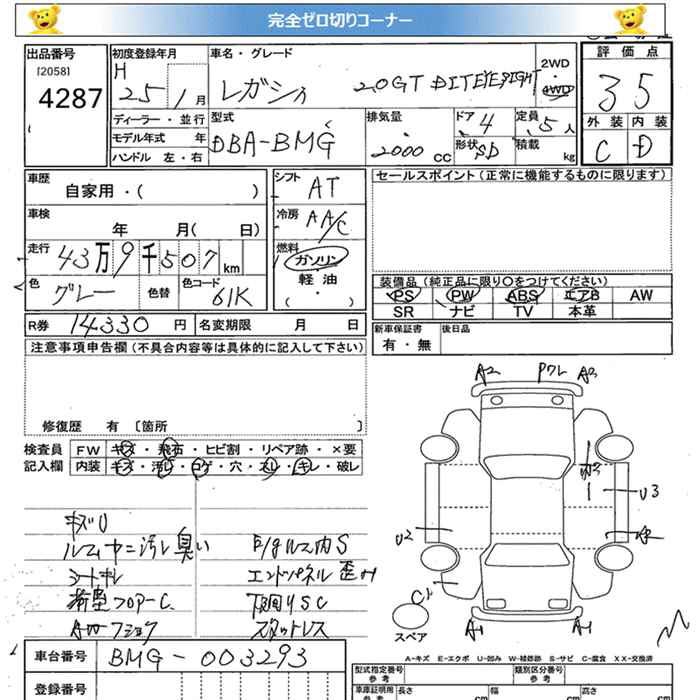 完全ゼロ切りコーナー
出品番号
[2058]
4287
初度登録年月
H
25 1月
車名・グレード
レガシィ 2.0GT DIT EYE SIGHT
2WD
4WD
評価点
3 5
外装 内装
C D
ディーラー・並行
モデル年式 年
ハンドル 左・右
型式
DBA-BMG
排気量
2000 cc
ドア 4
形状 SD
定員 5人
積載
kg
車歴
自家用・( )
車検
年 月( 日)
走行
43万9千507km
色
グレー
色替
色コード
61K
シフト
AT
冷房
AA/C
燃料
ガソリン
軽・油
( ・ )
セールスポイント(正常に機能するものに限ります)
装備品(純正品に限り○をつけてください)
PS PW ABS エアB AW
SR ナビ TV 本革
新車保証書
有・無
後日品
R券 14330 円 名変期限 月 日
注意事項申告欄(不具合内容等は具体的に記入して下さい)
修復歴 有 〔箇所 〕
検査員
記入欄
FW キズ・飛石・ヒビ割・リペア跡・×要
内装 キズ・汚れ・コゲ・穴・スレ・キレ・破レ
キズU
ルームヤニ汚レ臭い
シートキレ
荷室フロアーC
E/gルーム内S
エンドパネル歪み
下廻りSC
スタットレス
A2 A3
U2
U3
C1
A1 A1
スペア
A-キズ E-エクボ U-凹み W-補修跡 S-サビ C-腐食 XX-交換済
車台番号 BMG-003293
登録番号
型式指定番号
参考
類別区分番号
参考
車庫証明用
参考
長さ cm
幅 cm
高さ cm